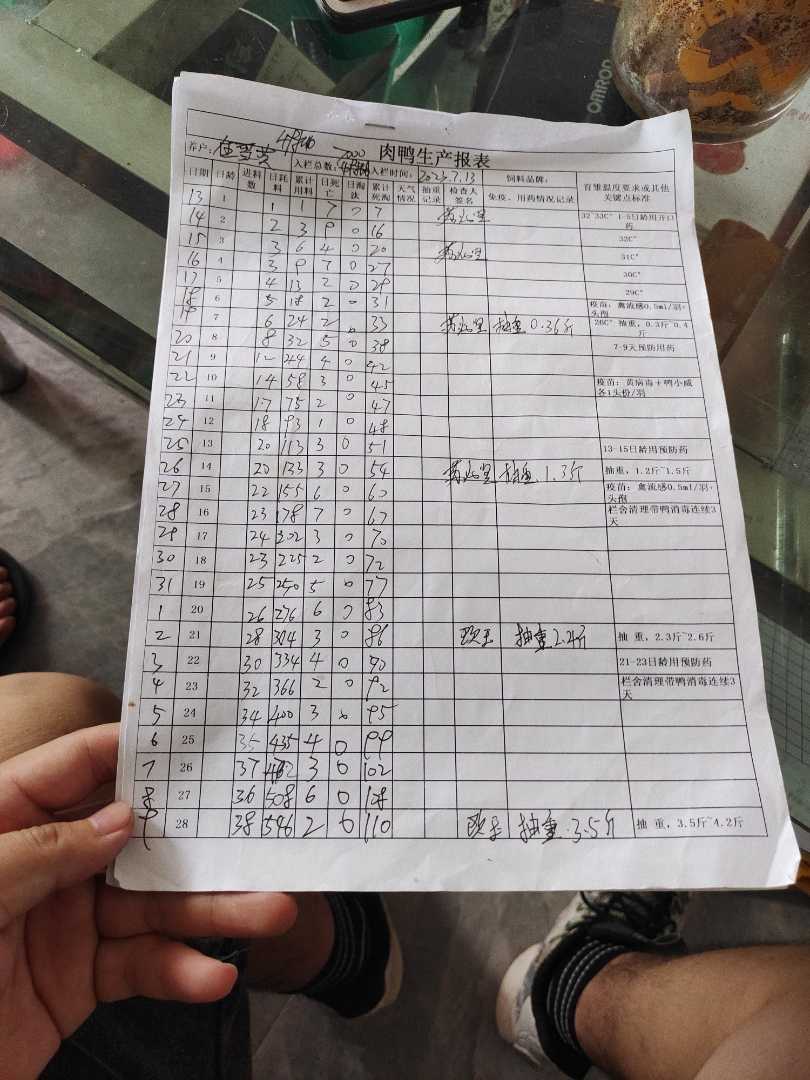 OMRON
肉鸭生产报表
养户: 入栏总数: 7000 入栏时间: 2023.7.13 饲料品牌:
日期 日龄 进料数 日耗料 累计用料 日死亡 日淘汰 累计死淘 天气情况 抽重记录 检查人签名 免疫、用药情况记录 育雏温度要求或其他关键点标准
13 1 1 1 7 0 7 32~33C° 1-5日龄用开口药
14 2 2 3 9 0 16 32C°
15 3 3 6 4 0 20 31C°
16 4 3 9 7 0 27 30C°
17 5 4 13 2 0 29 29C°
18 6 5 18 2 0 31 疫苗: 禽流感0.5ml/羽·头孢
19 7 6 24 2 0 33 抽重 0.36斤 28C° 抽重, 0.3斤~0.4斤
20 8 8 32 5 0 38 7-9天预防用药
21 9 12 44 4 0 42
22 10 14 58 3 0 45 疫苗: 黄病毒+鸭小威各1头份/羽
23 11 17 75 2 0 47
24 12 18 93 1 0 48
25 13 20 113 3 0 51 13-15日龄用预防药
26 14 20 133 3 0 54 抽重 1.3斤 抽重, 1.2斤~1.5斤
27 15 22 155 6 0 60 疫苗: 禽流感0.5ml/羽·头孢
28 16 23 178 7 0 67 栏舍清理带鸭消毒连续3天
29 17 24 202 3 0 70
30 18 23 225 2 0 72
31 19 25 250 5 0 77
1 20 26 276 6 0 83
2 21 28 304 3 0 86 抽重 2.4斤 抽 重, 2.3斤~2.6斤
3 22 30 334 4 0 90 21-23日龄用预防药
4 23 32 366 2 0 92 栏舍清理带鸭消毒连续3天
5 24 34 400 3 0 95
6 25 35 435 4 0 99
7 26 37 472 3 0 102
8 27 36 508 6 0 108
9 28 38 546 2 0 110 抽重 3.5斤 抽 重, 3.5斤~4.2斤